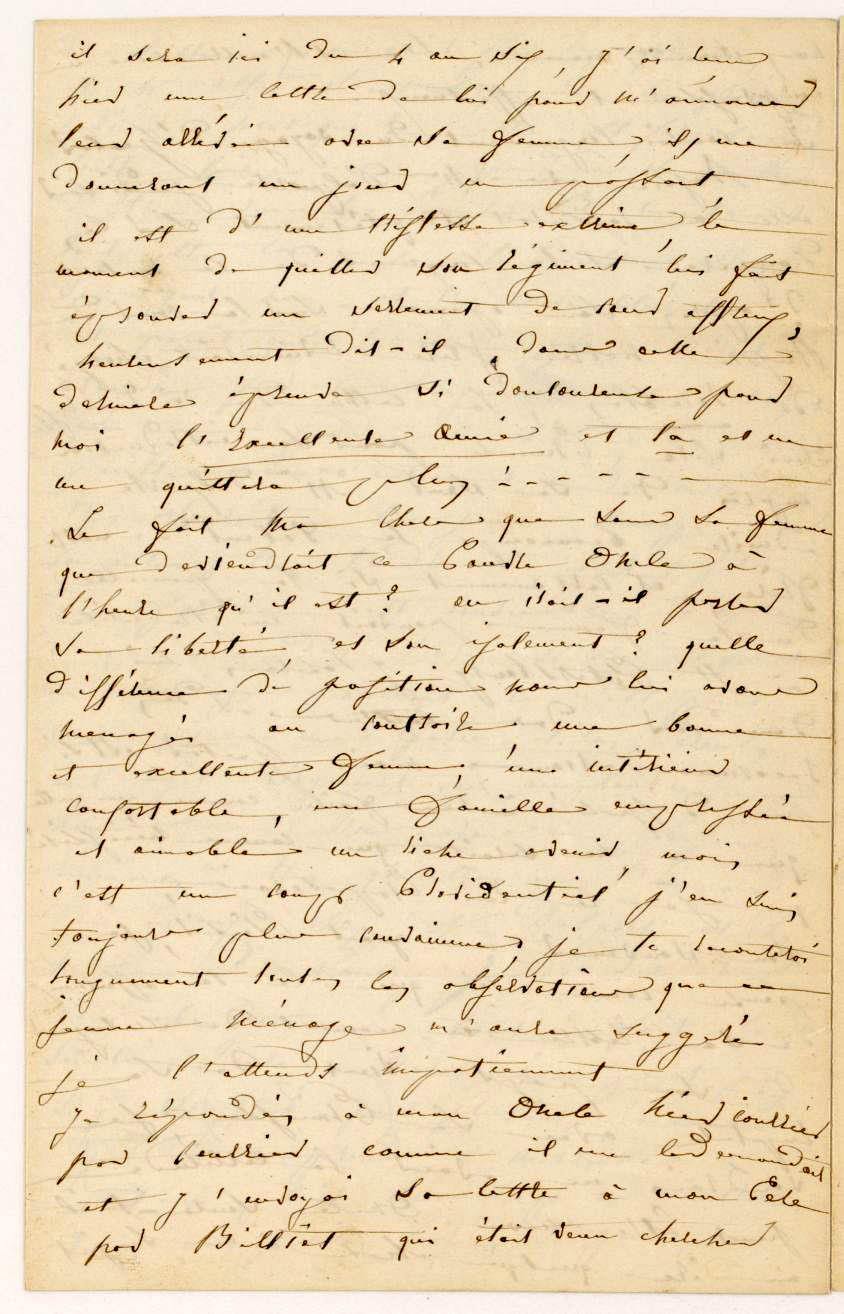 il sera ici du 4 au six, j'ai reçu
hier une lettre de lui pour m'annoncer
leur arrivée avec sa femme, ils me
donneront un jour en passant
il est d'une tristesse extrême, le
moment de quitter son régiment lui fait
éprouver un serrement de cœur affreux,
heureusement dit-il, dans cette
dernière épreuve si douloureuse pour
moi l'excellente amie est là et ne
me quittera plus! - - - - -
Le fait ma chère que sans sa femme
que deviendrait ce Pauvre Oncle à
l'heure qu'il est? où irait-il porter
sa liberté, et son isolement? quelle
différence de position pour lui avoir
ménagée au contraire une bonne
et excellente femme, une intérieur
confortable, une famille empressée
et aimable un riche avenir, mais
c'est un coup Providentiel j'en suis
toujours plus convaincue, je te raconterai
longuement toutes les observations que ce
jeune ménage m'aura suggéré
je l'attends impatiemment
je répondis à mon Oncle hier courrier
par courrier comme il me le demandait
et j'envoyai sa lettre à mon Père
par Billiet qui était venu chercher